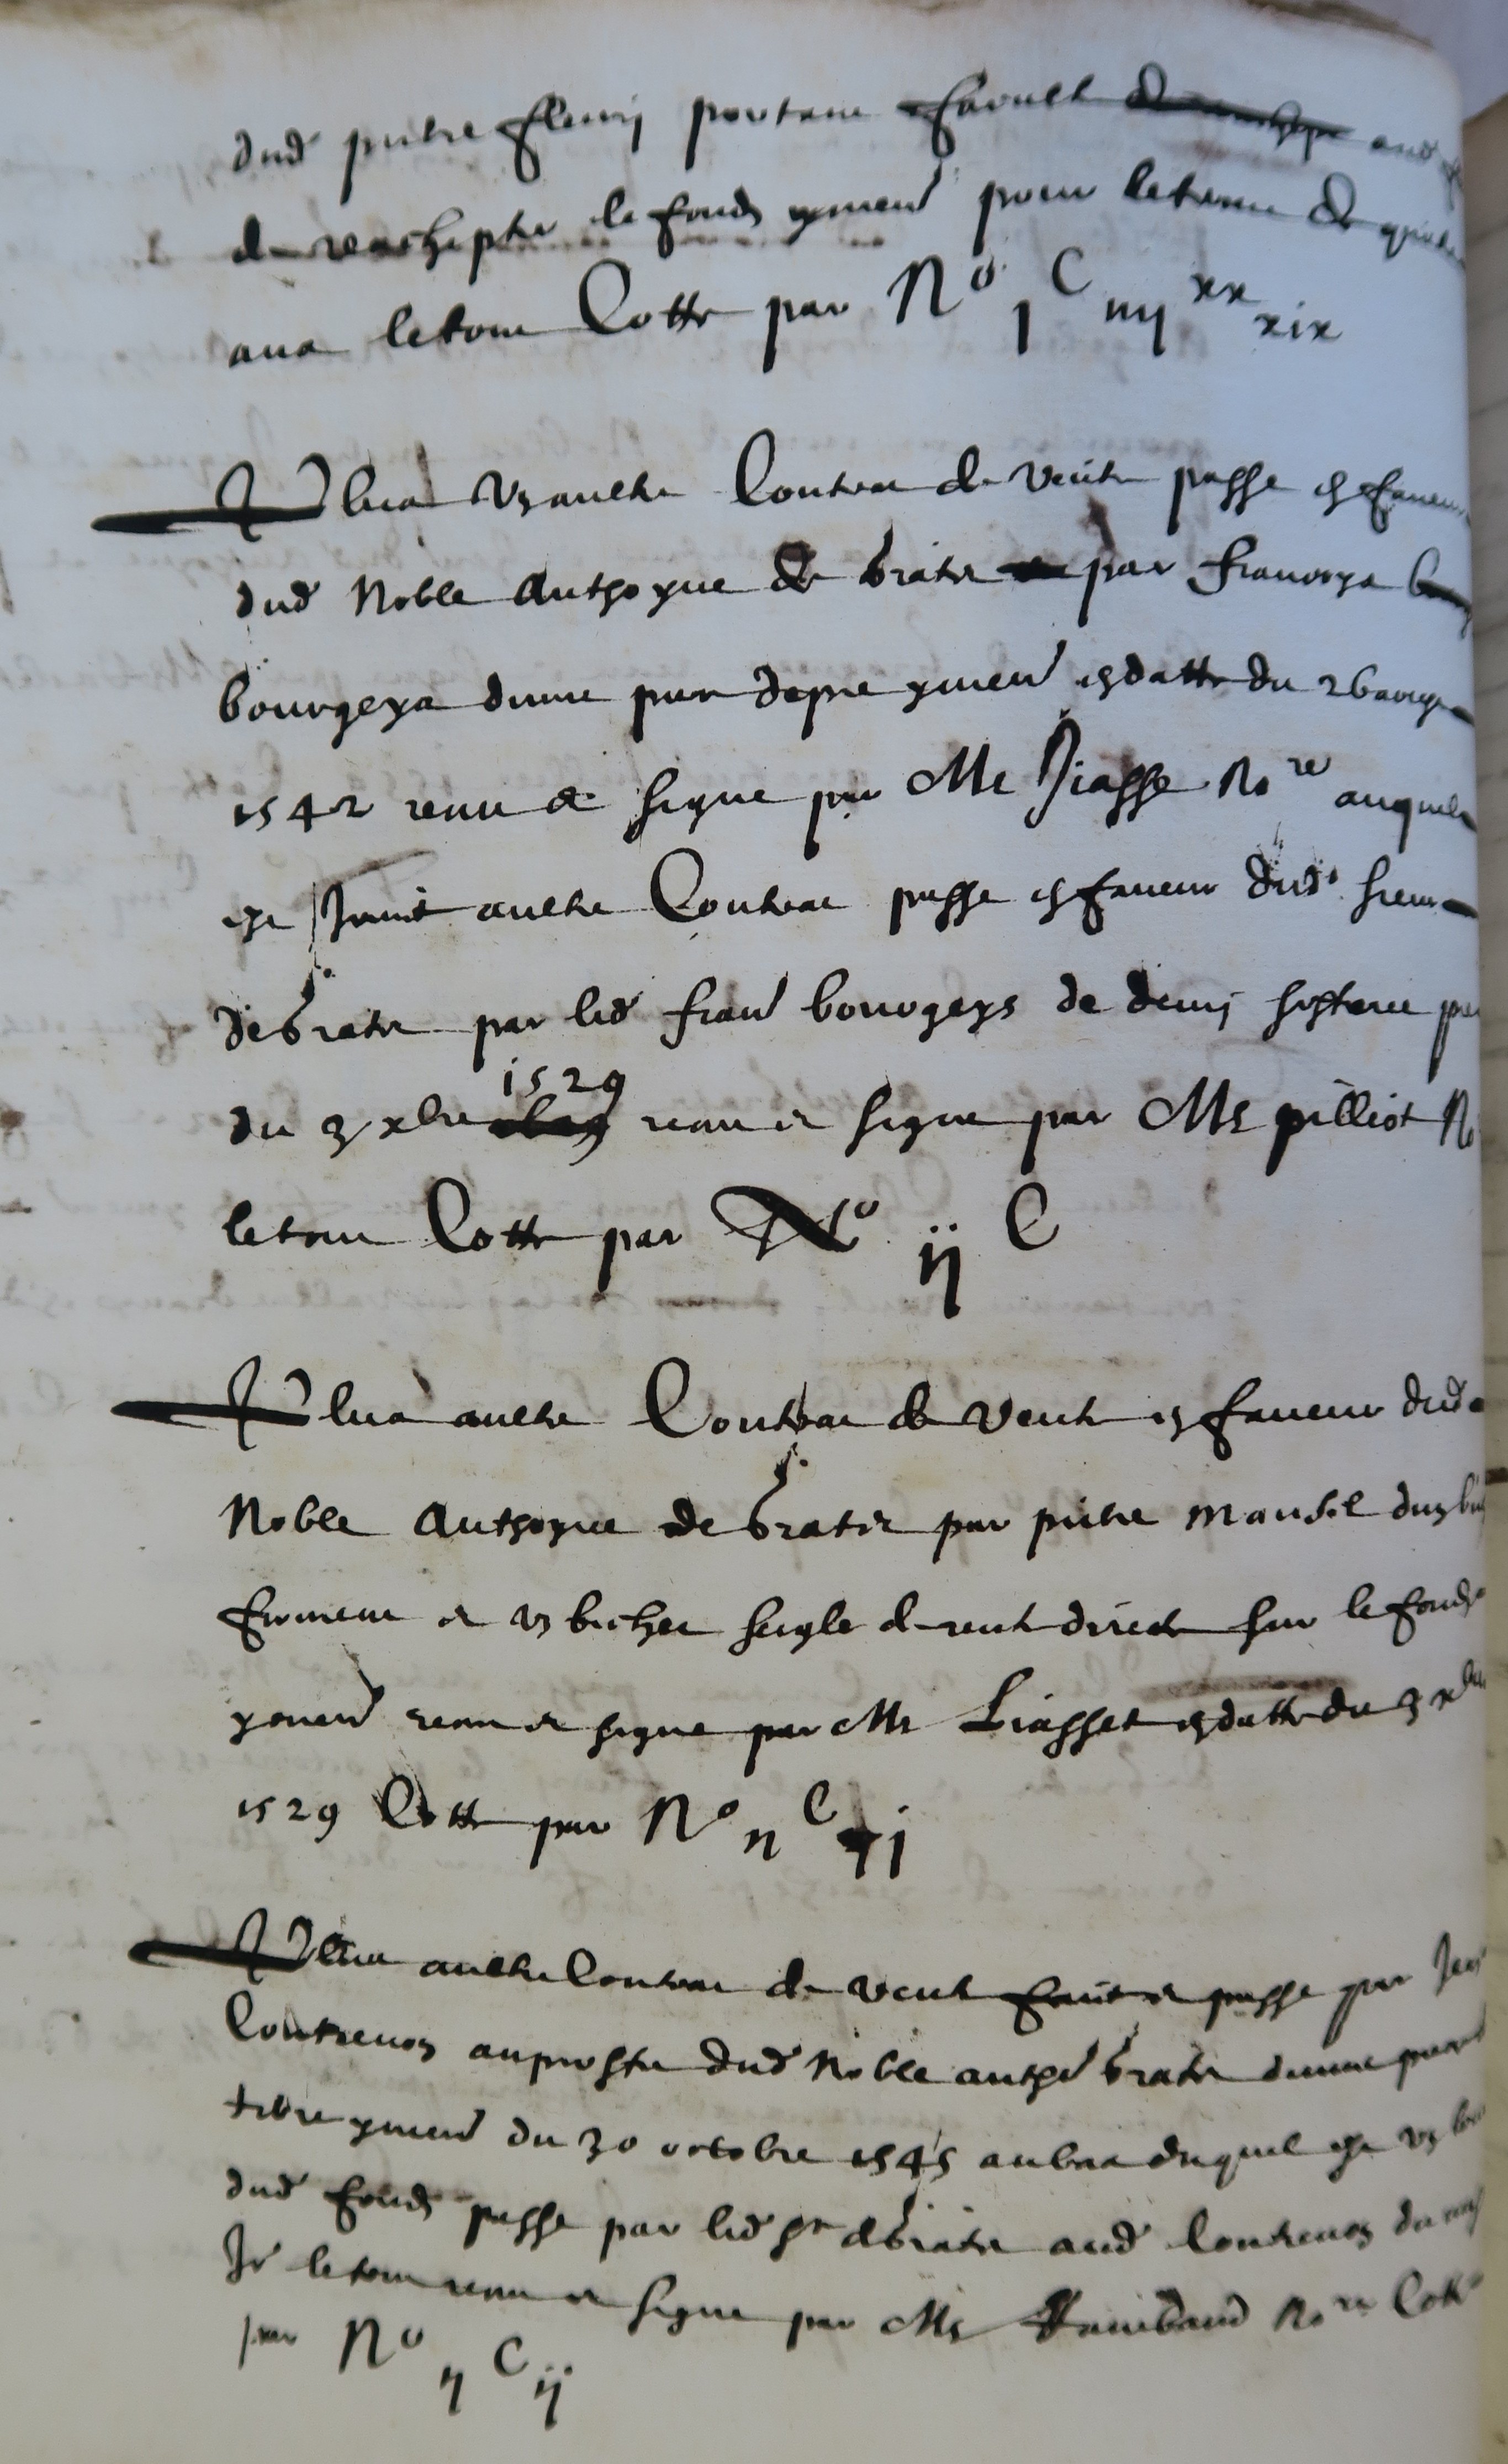 dud pierre fleury portant facultè aud
de rachepter le fonds y mend pour le terme de quatre
ans le tout Cotté par N° j C iiij xx xix
Plus Un aultre Contrac de vente passe en faveur
dud Noble Anthoyne de brate par francoys
bourgeys dune piece depre y mend en datte du 26 auvr
1542 receu et signe par Me Jiasse No re auquel
est Joinct aultre Contrac passe en faveur dud sieur
de brate par led franc bourgeys de demy sesteree pre
du 3 xbre 1529 receu et signe par Me pilliot No
le tout Cotte par N° ij C
Plus aultre Contrac de vente en faveur dud
Noble Anthoyne de bratte par pierre mansel dun
froment et un bichet seigle de rente directe sur le fonds
y mend receu et signe par Me Liasset en datte du 3 xbre
1529 Cotté par N° ij C j
Plus aultre Contrac de vente faict et passe par Jean
Contrevoz au proffit dud Noble anthe brate dune piece
terre y mend du 30 octobre 1545 au bas duquel est un
dud fonds passe par led Sr de brate aud Contrevoz du
Jr le tout receu et signe par Me Raimbaud No re Cotté
par N° ij C ij